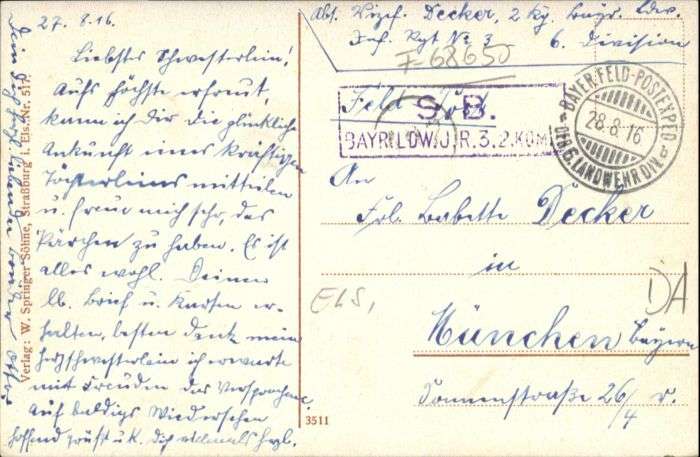 27.8.16
Liebstes Schwesterlein!
Aufs höchste erfreut,
kann ich Dir die glückliche
Ankunft eines kräftigen
Töchterleins mitteilen
u. freue mich sehr, das
Pärchen zu haben. Es ist
alles wohl. Deinen
lb. Brief u. Karten er-
halten, besten Dank mein
Herzschwesterlein ich erwarte
mit Freuden das Versprochene.
Auf baldiges Wiedersehen
hoffend grüßt u. k. Dich vielmals herzl.
Dein Dich liebender Bruder
Verlag: W. Springer Söhne, Straßburg i. Els. Nr. 517.
3511
Abs. Vizef. Decker, 2 Kp. bayr. Ldw.
Inf. Rgt No 3 6. Division
F 68650
Feld
S. B.
BAYR.LDW.J.R.3.2.KOM
BAYER.FELD-POSTEXPED.
28.8.16
DER 6.LANDWEHR DIV.
An
Frl. Babette Decker
in
München
Bayern
Sonnenstraße 26/4 r.
ELS,
DA